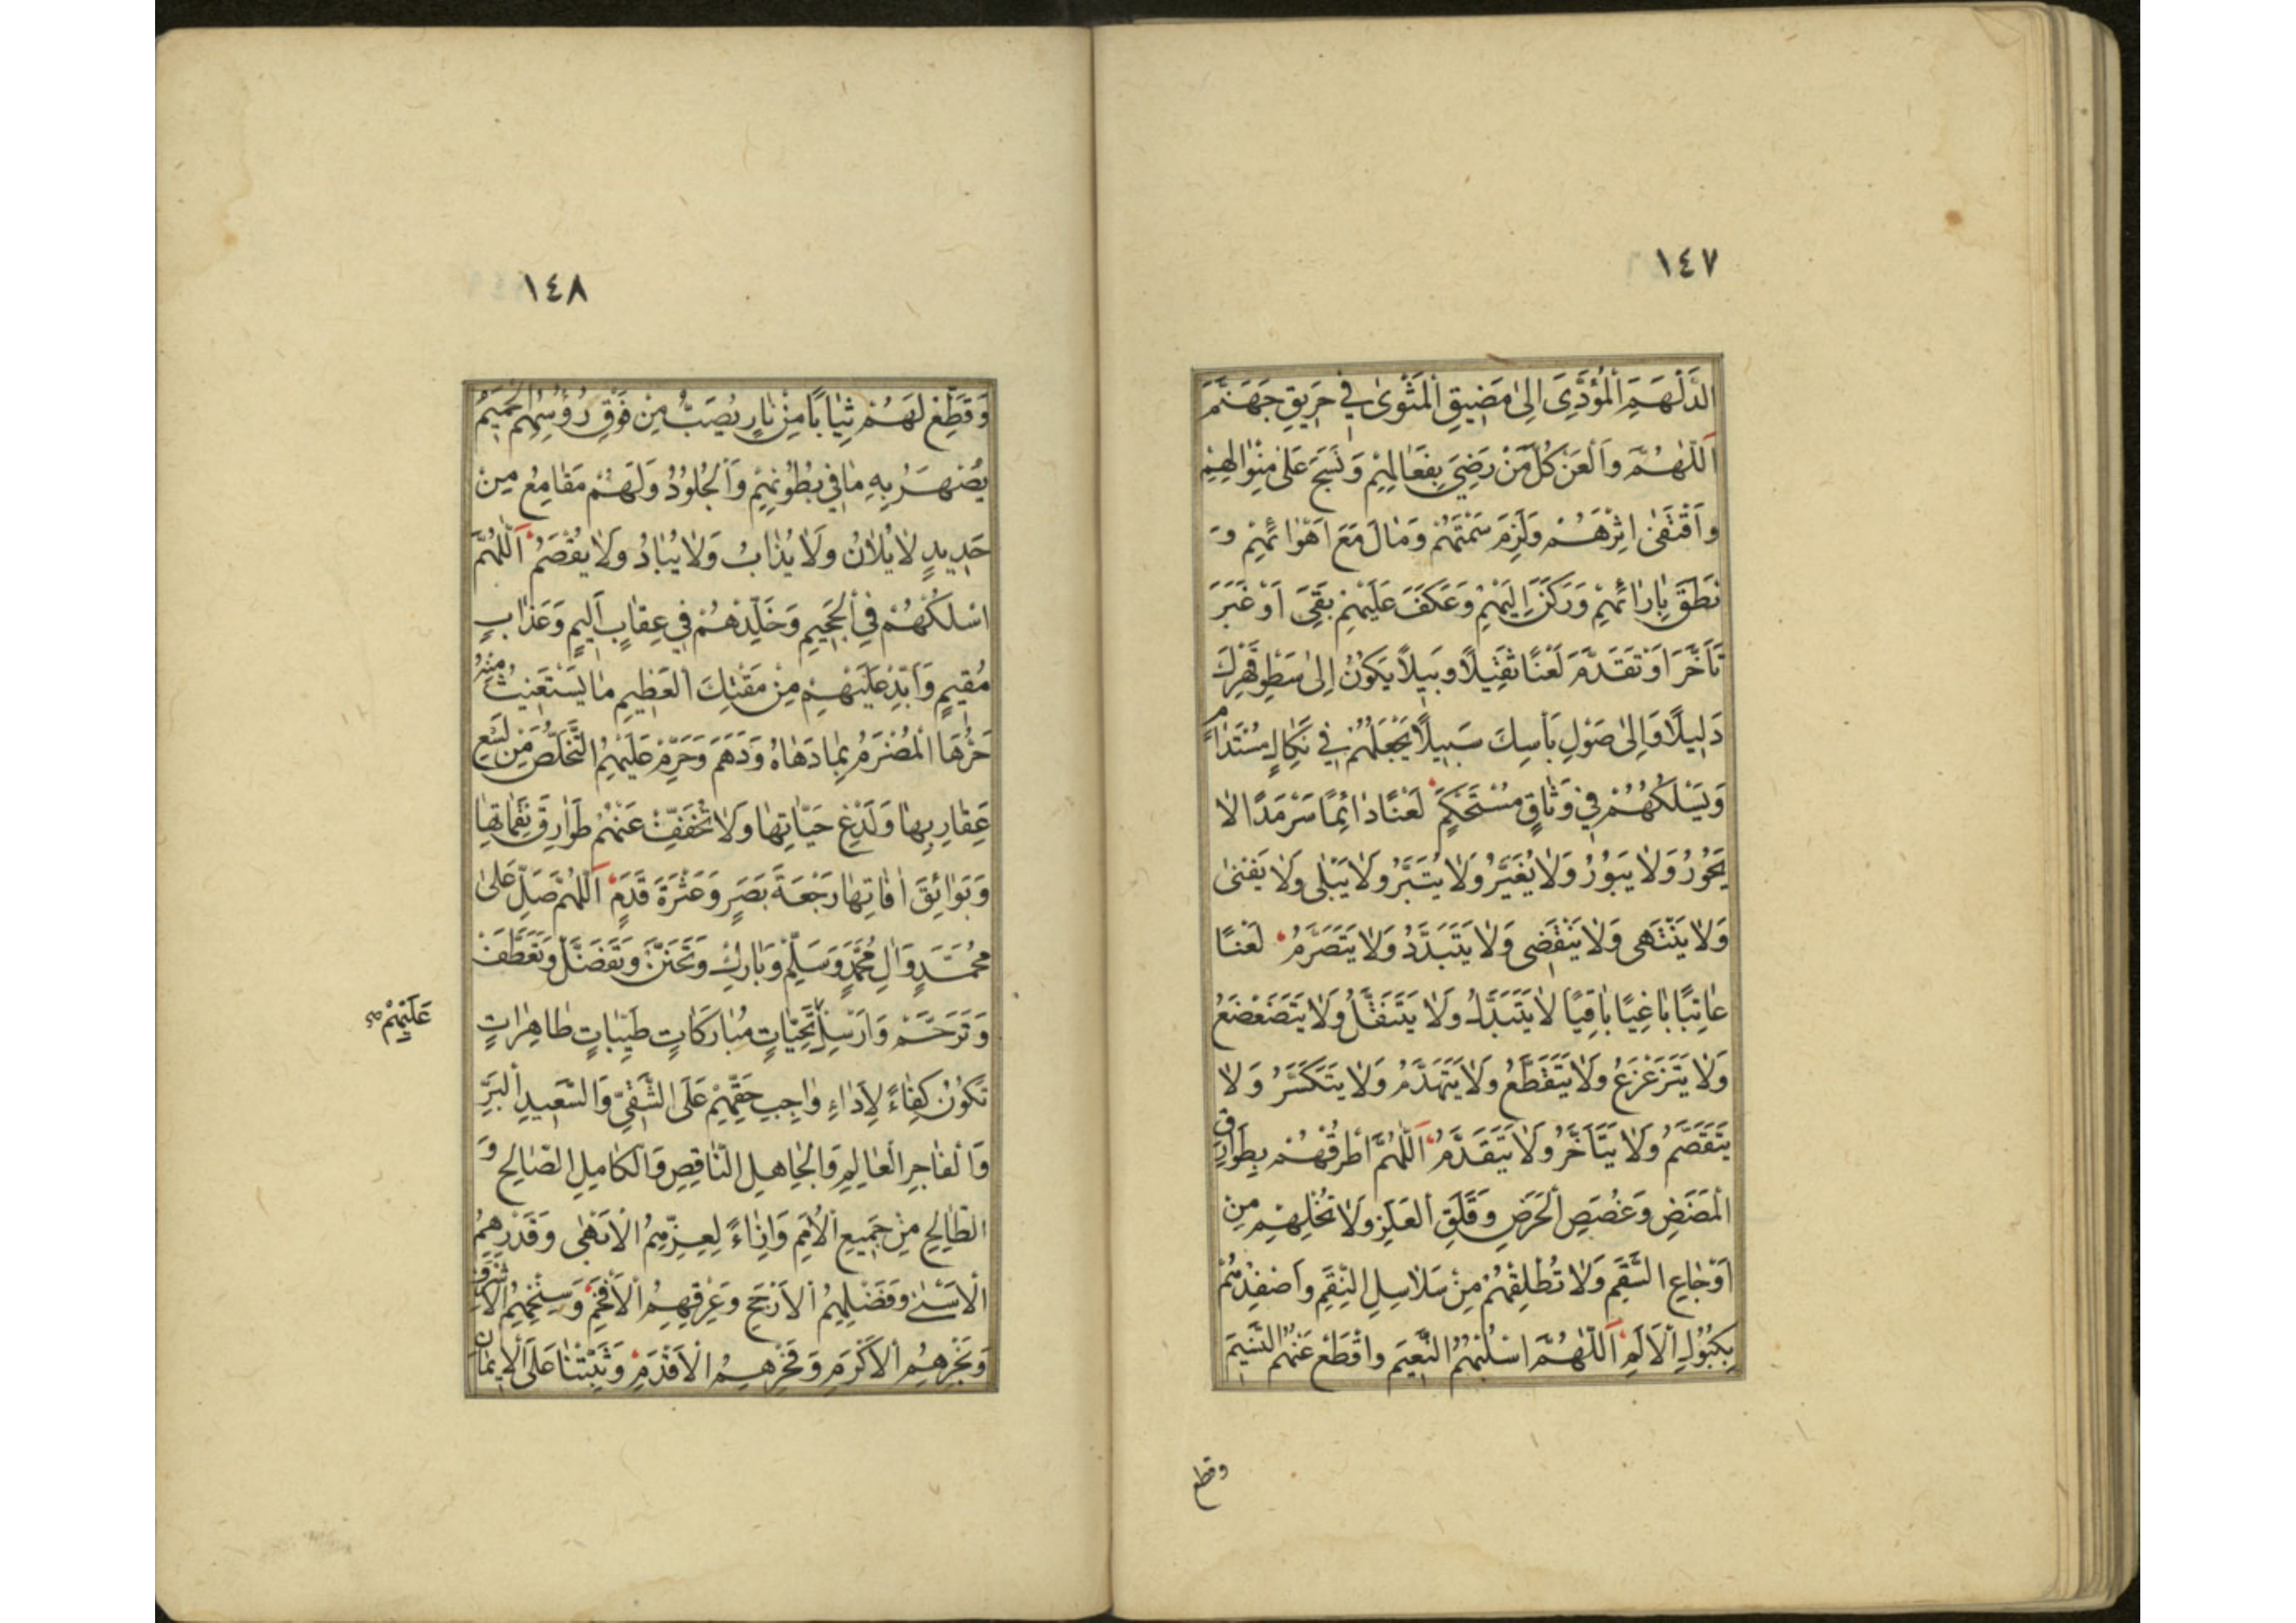 ١٤٧
الدَّلْهَمِ الْمُؤَدِّى اِلىٰ مَضِيقِ الْمَثْوىٰ فِي حَرِيقِ جَهَنَّمَ
اَللّٰهُمَّ وَالْعَنْ كُلَّ مَنْ رَضِيَ بِفَعَالِهِمْ وَنَسَجَ عَلىٰ مِنْوٰالِهِمْ
وَاقْتَفىٰ اِثْرَهُمْ وَلَزِمَ سَمْتَهُمْ وَمٰالَ مَعَ اَهْوٰائِهِمْ وَ
نَطَقَ بِاٰرٰائِهِمْ وَرَكَنَ اِلَيْهِمْ وَعَكَفَ عَلَيْهِمْ بَقِيَ اَوْ غَبَرَ
تَأَخَّرَ اَوْ تَقَدَّمَ لَعْنًا ثَقِيلًا وَبِيلًا يَكُونُ اِلىٰ سَطْوِ قَهْرِكَ
دَلِيلًا وَاِلىٰ صَوْلِ بَأْسِكَ سَبِيلًا يَجْعَلُهُمْ فِي نَكٰالٍ مُسْتَدٰامٍ
وَيَسْلُكُهُمْ فِي وَثٰاقٍ مُسْتَحْكَمٍ لَعْنًا دٰائِمًا سَرْمَدًا لاٰ
يَحُورُ وَلاٰ يَبُورُ وَلاٰ يُغَيَّرُ وَلاٰ يُتَبَّرُ وَلاٰ يَبْلٰى وَلاٰ يَفْنىٰ
وَلاٰ يَنْتَهى وَلاٰ يَنْقَضِى وَلاٰ يَتَبَدَّدُ وَلاٰ يَتَصَرَّمُ لَعْنًا
عٰاتِبًا بٰاغِيًا بٰاقِيًا لاٰ يَتَبَدَّلُ وَلاٰ يَتَنَفَّلُ وَلاٰ يَتَضَعْضَعُ
وَلاٰ يَتَزَعْزَعُ وَلاٰ يَتَقَطَّعُ وَلاٰ يَتَهَدَّمُ وَلاٰ يَتَكَسَّرُ وَلاٰ
يَتَقَصَّمُ وَلاٰ يَتَأَخَّرُ وَلاٰ يَتَقَدَّمُ اَللّٰهُمَّ اطْرُقْهُمْ بِطَوٰارِقِ
الْمَضَضِ وَغُصَصِ الْحَرَضِ وَقَلَقِ الْعَلَزِ وَلاٰ تُخْلِهِمْ مِنْ
اَوْجٰاعِ السَّقَمِ وَلاٰ تُطْلِقْهُمْ مِنْ سَلاٰسِلِ النِّقَمِ وَاَصْفِدْهُمْ
بِكُبُولِ الْاَلَمِ اَللّٰهُمَّ اسْلُبْهُمُ النَّعِيمَ وَاقْطَعْ عَنْهُمُ النَّسِيمَ
وقطع
١٤٨
وَقَطِّعْ لَهُمْ ثِيٰابًا مِنْ نٰارٍ يُصَبُّ مِنْ فَوْقِ رُؤُسِهِمُ الْحَمِيمُ
يُصْهَرُ بِهِ مٰا فِي بُطُونِهِمْ وَالْجُلُودُ وَلَهُمْ مَقٰامِعُ مِنْ
حَدِيدٍ لاٰ يُلاٰنُ وَلاٰ يُذٰابُ وَلاٰ يُبٰادُ وَلاٰ يُقْصَمُ اَللّٰهُمَّ
اسْلُكْهُمْ فِي الْجَحِيمِ وَخَلِّدْهُمْ فِي عِقٰابٍ اَلِيمٍ وَعَذٰابٍ
مُقِيمٍ وَاَبِّدْ عَلَيْهِمْ مِنْ مَقْتِكَ الْعَظِيمِ مٰا يَسْتَغِيثُ مِنْهُ
حَرُّهَا الْمُضْرَمُ بِمٰا دَهٰاهُ وَدَهَمَ وَحَرِّمْ عَلَيْهِمُ التَّخَلُّصَ مِنْ لَسْعِ
عَقٰارِبِهٰا وَلَدْغِ حَيّٰاتِهٰا وَلاٰ تُخَفِّفْ عَنْهُمْ طَوٰارِقَ نَقِمٰاتِهٰا
وَبَوٰائِقَ اٰفٰاتِهٰا رَجْعَةَ بَصَرٍ وَعَثْرَةَ قَدَمٍ اَللّٰهُمَّ صَلِّ عَلىٰ
مُحَمَّدٍ وَاٰلِ مُحَمَّدٍ وَسَلِّمْ وَبٰارِكْ وَتَحَنَّنْ وَتَفَضَّلْ وَتَعَطَّفْ
وَتَرَحَّمْ وَاَرْسِلْ تَحِيّٰاتٍ مُبٰارَكٰاتٍ طَيِّبٰاتٍ طٰاهِرٰاتٍ
عَلَيْهِمْ صح
تَكُونُ كِفٰاءً لِاَدٰاءِ وٰاجِبِ حَقِّهِمْ عَلَى الشَّقِيِّ وَالسَّعِيدِ الْبَرِّ
وَالْفٰاجِرِ الْعٰالِمِ وَالْجٰاهِلِ النّٰاقِصِ وَالْكٰامِلِ الصّٰالِحِ وَ
الطّٰالِحِ مِنْ جَمِيعِ الْاُمَمِ وَاِزٰاءً لِعِزِّهِمُ الْاَبْهٰى وَقَدْرِهِمُ
الْاَسْنىٰ وَفَضْلِهِمُ الْاَرْجَحِ وَعِرْقِهِمُ الْاَفْخَمِ وَسِنْخِهِمُ الْاَشْرَفِ
وَنَجْرِهِمُ الْاَكْرَمِ وَفَخْرِهِمُ الْاَقْدَمِ وَثَبِّتْنٰا عَلَى الْاِيمٰانِ